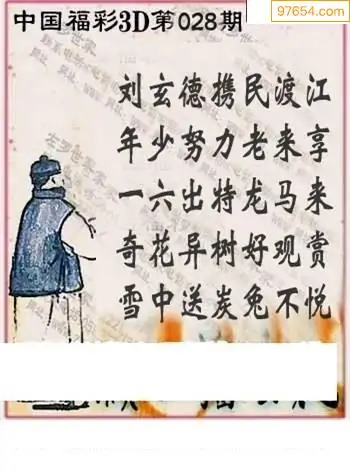 97654.com
中国福彩3D第028期
刘玄德携民渡江
年少努力老来享
一六出特龙马来
奇花异树好观赏
雪中送炭兔不悦